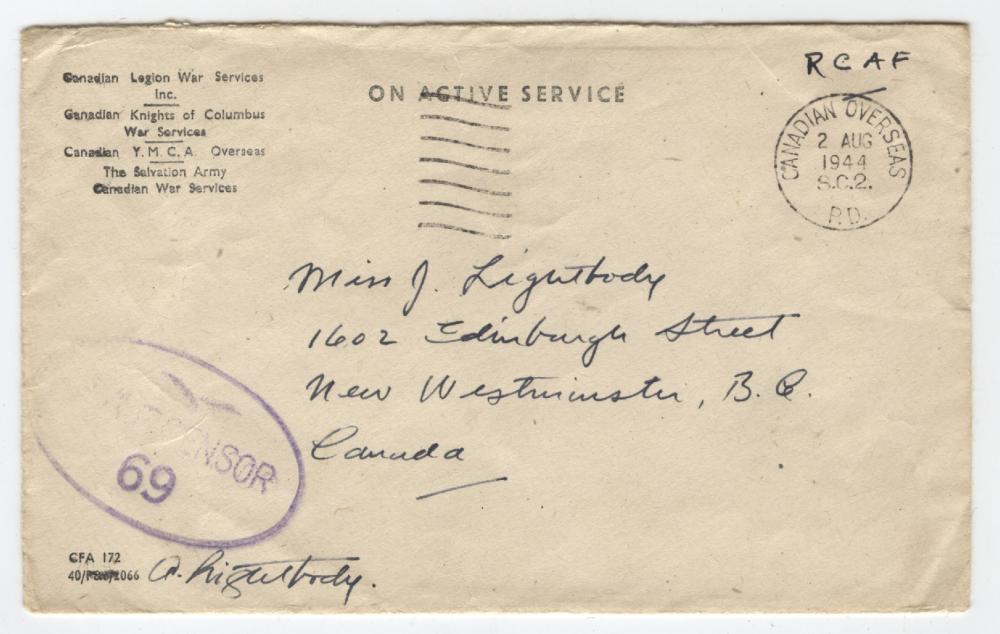 Canadian Legion War Services
Inc.
Canadian Knights of Columbus
War Services
Canadian Y.M.C.A. Overseas
The Salvation Army
Canadian War Services
ON ACTIVE SERVICE
RCAF
CANADIAN OVERSEAS
2 AUG
1944
S.C.2.
P.D.
Miss J. Lightbody
1602 Edinburgh Street
New Westminster, B.C.
Canada
CENSOR
69
CFA 172
A. Lightbody.